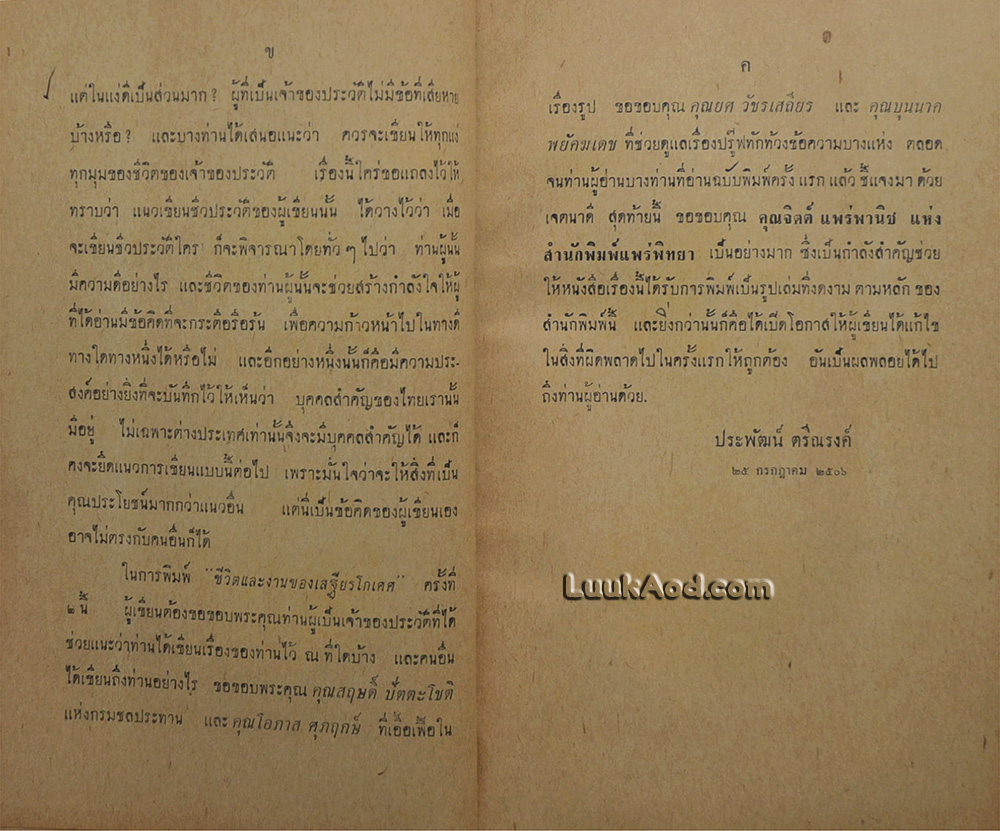 ข
แต่ในแง่ดีเป็นส่วนมาก? ผู้ที่เป็นเจ้าของประวัติไม่มีข้อที่เสียหาย
บ้างหรือ? และบางท่านได้เสนอแนะว่า ควรจะเขียนให้ทุกแง่
ทุกมุมของชีวิตของเจ้าของประวัติ เรื่องนี้ใคร่ขอแถลงไว้ให้
ทราบว่า แนวเขียนชีวประวัติของผู้เขียนนั้น ได้วางไว้ว่า เมื่อ
จะเขียนชีวประวัติใคร ก็จะพิจารณาโดยทั่ว ๆ ไปว่า ท่านผู้นั้น
มีความดีอย่างไร และชีวิตของท่านผู้นั้นจะช่วยสร้างกำลังใจให้ผู้
ที่ได้อ่านมีข้อคิดที่จะกระตือรือร้น เพื่อความก้าวหน้าไปในทางดี
ทางใดทางหนึ่งได้หรือไม่ และอีกอย่างหนึ่งนั้นก็คือมีความประ-
สงค์อย่างยิ่งที่จะบันทึกไว้ให้เห็นว่า บุคคลสำคัญของไทยเรานั้น
มีอยู่ ไม่เฉพาะต่างประเทศเท่านั้นจึงจะมีบุคคลสำคัญได้ และก็
คงจะยึดแนวการเขียนแบบนี้ต่อไป เพราะมั่นใจว่าจะให้สิ่งที่เป็น
คุณประโยชน์มากกว่าแนวอื่น แต่นี่เป็นข้อคิดของผู้เขียนเอง
อาจไม่ตรงกับคนอื่นก็ได้
ในการพิมพ์ "ชีวิตและงานของเสฐียรโกเศศ" ครั้งที่
๒ นี้ ผู้เขียนต้องขอขอบพระคุณท่านผู้เป็นเจ้าของประวัติที่ได้
ช่วยแนะว่าท่านได้เขียนเรื่องของท่านไว้ ณ ที่ใดบ้าง และคนอื่น
ได้เขียนถึงท่านอย่างไร ขอขอบพระคุณ คุณสฤษดิ์ ปัตตะโชติ
แห่งกรมชลประทาน และ คุณโอภาส ศุภฤกษ์ ที่เอื้อเฟื้อใน
ค
เรื่องรูป ขอขอบคุณ คุณยศ วัชรเสถียร และ คุณบุนนาค
พยัคฆเดช ที่ช่วยดูแลเรื่องปรู๊ฟทักท้วงข้อความบางแห่ง ตลอด
จนท่านผู้อ่านบางท่านที่อ่านฉบับพิมพ์ครั้ง แรก แล้ว ชี้แจงมา ด้วย
เจตนาดี สุดท้ายนี้ ขอขอบคุณ คุณจิตต์ แพร่พานิช แห่ง
สำนักพิมพ์แพร่พิทยา เป็นอย่างมาก ซึ่งเป็นกำลังสำคัญช่วย
ให้หนังสือเรื่องนี้ได้รับการพิมพ์เป็นรูปเล่มที่งดงาม ตามหลัก ของ
สำนักพิมพ์นี้ และยิ่งกว่านั้นก็คือได้เปิดโอกาสให้ผู้เขียนได้แก้ไข
ในสิ่งที่ผิดพลาดไปในครั้งแรกให้ถูกต้อง อันเป็นผลพลอยได้ไป
ถึงท่านผู้อ่านด้วย.
ประพัฒน์ ตรีณรงค์
๒๕ กรกฎาคม ๒๕๐๖
LuukAod.com